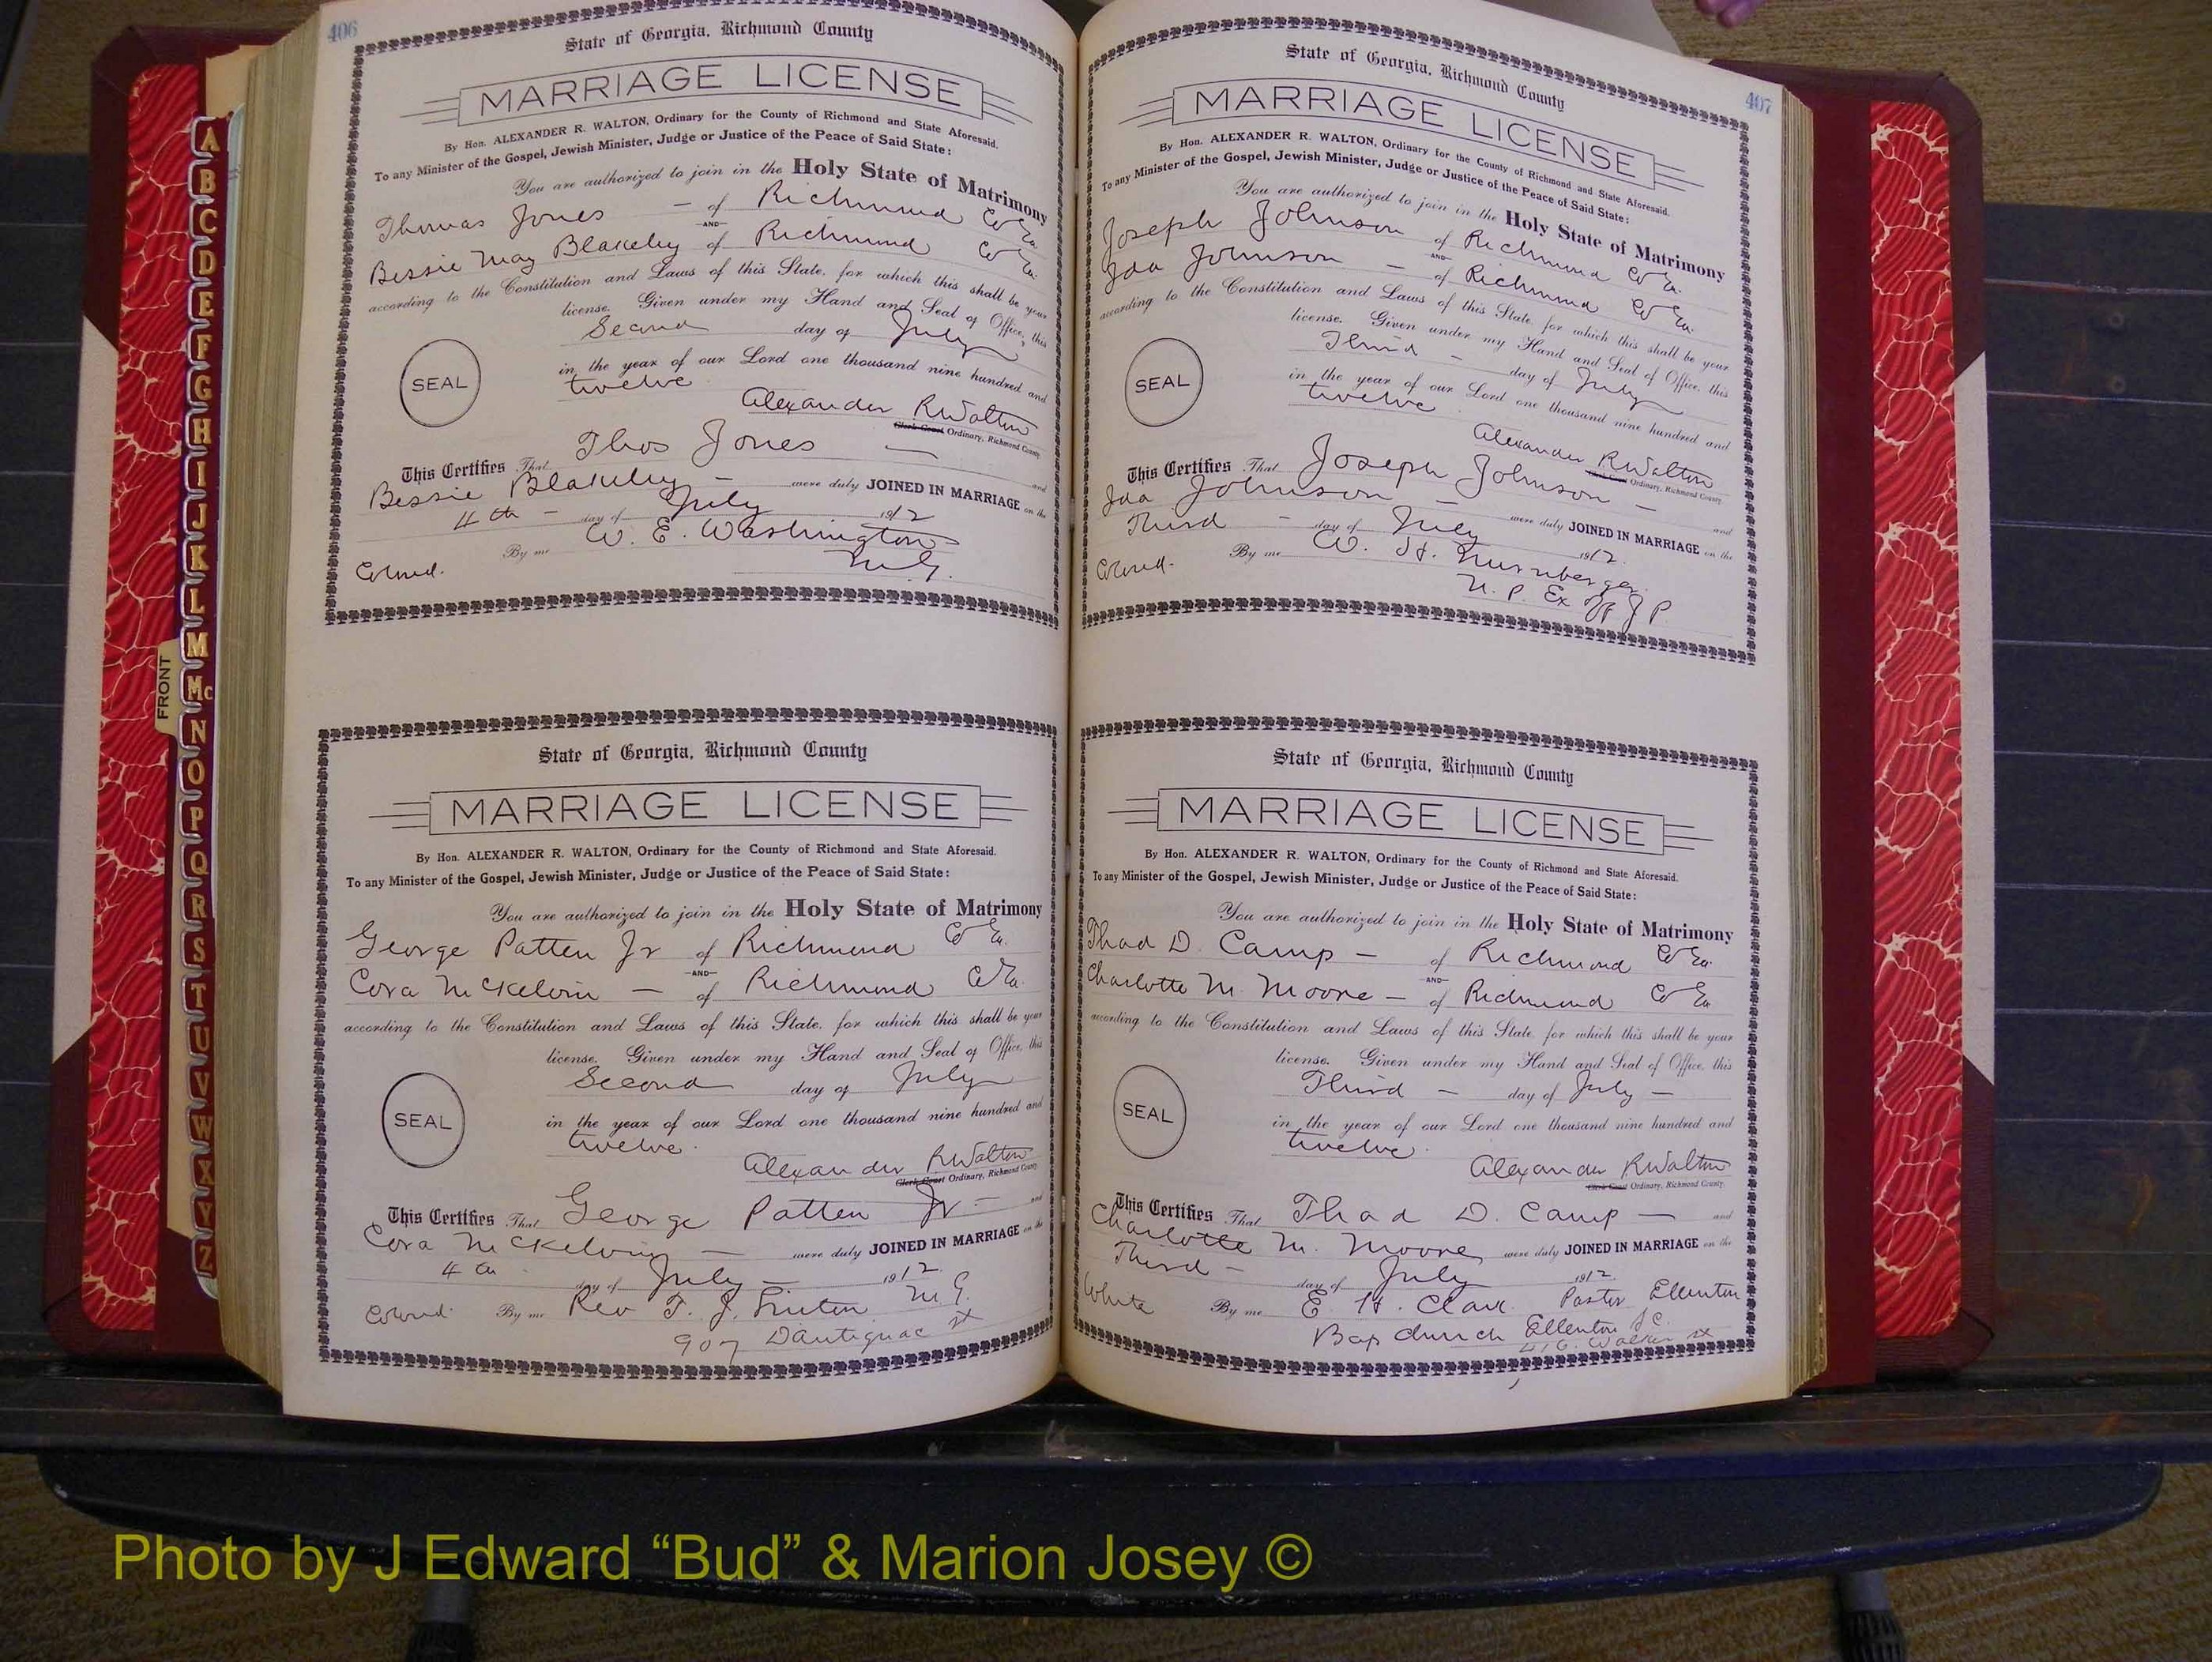 406
State of Georgia, Richmond County
MARRIAGE LICENSE
By Hon. ALEXANDER R. WALTON, Ordinary for the County of Richmond and State Aforesaid.
To any Minister of the Gospel, Jewish Minister, Judge or Justice of the Peace of Said State:
You are authorized to join in the Holy State of Matrimony
Thomas Jones — of Richmond Co Ga.
—AND—
Bessie May Blakeley of Richmond Co Ga.
according to the Constitution and Laws of this State, for which this shall be your
license. Given under my Hand and Seal of Office, this
Second day of July
SEAL
in the year of our Lord one thousand nine hundred and
twelve
Alexander R Walton
Clerk Court Ordinary, Richmond County.
This Certifies That Thos Jones — and
Bessie Blakeley — were duly JOINED IN MARRIAGE on the
4th — day of July 1912
By me W. E. Washington
Colored. M.G.
State of Georgia, Richmond County
MARRIAGE LICENSE
By Hon. ALEXANDER R. WALTON, Ordinary for the County of Richmond and State Aforesaid.
To any Minister of the Gospel, Jewish Minister, Judge or Justice of the Peace of Said State:
You are authorized to join in the Holy State of Matrimony
George Patten Jr of Richmond Co Ga.
—AND—
Cora McKelvin — of Richmond Co Ga.
according to the Constitution and Laws of this State, for which this shall be your
license. Given under my Hand and Seal of Office, this
Second day of July
SEAL
in the year of our Lord one thousand nine hundred and
twelve.
Alexander R Walton
Clerk Court Ordinary, Richmond County.
This Certifies That George Patten Jr — and
Cora — were duly JOINED IN MARRIAGE on the
4th day of July — 1912
Colored. By me Rev T. J. M G.
907 D'Antignac st
407
State of Georgia, Richmond County
MARRIAGE LICENSE
By Hon. ALEXANDER R. WALTON, Ordinary for the County of Richmond and State Aforesaid.
To any Minister of the Gospel, Jewish Minister, Judge or Justice of the Peace of Said State:
You are authorized to join in the Holy State of Matrimony
Joseph Johnson of Richmond Co Ga.
—AND—
Ida Johnson — of Richmond Co Ga.
according to the Constitution and Laws of this State, for which this shall be your
license. Given under my Hand and Seal of Office, this
Third — day of July
SEAL
in the year of our Lord one thousand nine hundred and
twelve
Alexander R Walton
Clerk Court Ordinary, Richmond County.
This Certifies That Joseph Johnson — and
Ida Johnson — were duly JOINED IN MARRIAGE on the
Third — day of July 1912.
Colored. By me W. H. Nurnberger
N. P. Ex off J P.
State of Georgia, Richmond County
MARRIAGE LICENSE
By Hon. ALEXANDER R. WALTON, Ordinary for the County of Richmond and State Aforesaid.
To any Minister of the Gospel, Jewish Minister, Judge or Justice of the Peace of Said State:
You are authorized to join in the Holy State of Matrimony
Thad D. Camp — of Richmond Co Ga.
—AND—
Charlotte M. Moore — of Richmond Co Ga
according to the Constitution and Laws of this State, for which this shall be your
license. Given under my Hand and Seal of Office, this
Third — day of July —
SEAL
in the year of our Lord one thousand nine hundred and
twelve.
Alexander R Walton
Clerk Court Ordinary, Richmond County.
This Certifies That Thad D. Camp — and
Charlotte M. Moore were duly JOINED IN MARRIAGE on the
Third — day of July 1912
White By me E. H. Clark. Pastor Ellenton
Bap church Ellenton S C.
416 Walker st
A
B
C
D
E
F
G
H
I
J
K
L
M
Mc
N
O
P
Q
R
S
T
U
V
W
X
Y
Z
FRONT
Photo by J Edward “Bud” & Marion Josey ©